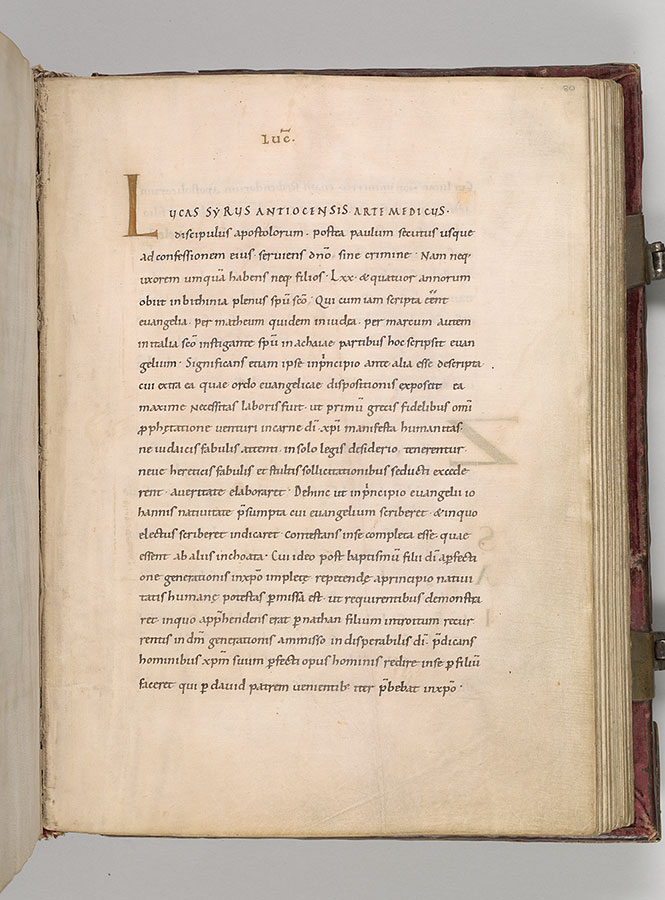 80
luc̄.
LVCAS SYRVS ANTIOCENSIS ARTE MEDICVS·
discipulus apostolorum· postea paulum secutus usque
ad confessionem eius· seruiens dn̄o sine crimine· Nam neq·
uxorem umquā habens neq· filios· Lxx· & quatuor annorum
obiit in bithinia plenus spū sc̄o· Qui cum iam scripta eēnt
euangelia· per matheum quidem in iudea· per marcum autem
in italia sc̄o instigante spū in achaiae partibus hoc scripsit euan
gelium· Significans etiam ipse inp̄ncipio ante alia esse descripta·
cui extra ea quae ordo euangelicae dispositionis exposcit ea
maxime necessitas laboris fuit· ut primū grecis fidelibus omī
ꝓphętatione uenturi in carne dī· xp̄i manifesta humanitas·
ne iudaicis fabulis attenti· in solo legis desiderio tenerentur·
neue hereticis fabulis et stultis sollicitationibus seducti excede
rent· a ueritate elaboraret· Dehinc ut inp̄ncipio euangelii io
hannis natiuitate p̄sumpta cui euangelium scriberet· & in quo
electus scriberet indicaret· contestans in se completa esse· quae
essent ab aliis inchoata· Cui ideo post baptismū filii dī aꝑfecti
one generationis in xp̄o implete repetendę a principio natiui
tatis humanę potestas ꝑmissa est· ut requirentibus demonstra
ret· in quo app̄hendens erat ꝑ nathan filium introitum recur
rentis in dm̄ generationis ammisso indisperabilis dī· p̄dicans
hominibus xp̄m suum ꝑfecti opus hominis redire in se ꝑ filiū
faceret qui ꝑ dauid patrem uenientib; iter p̄bebat in xp̄o·